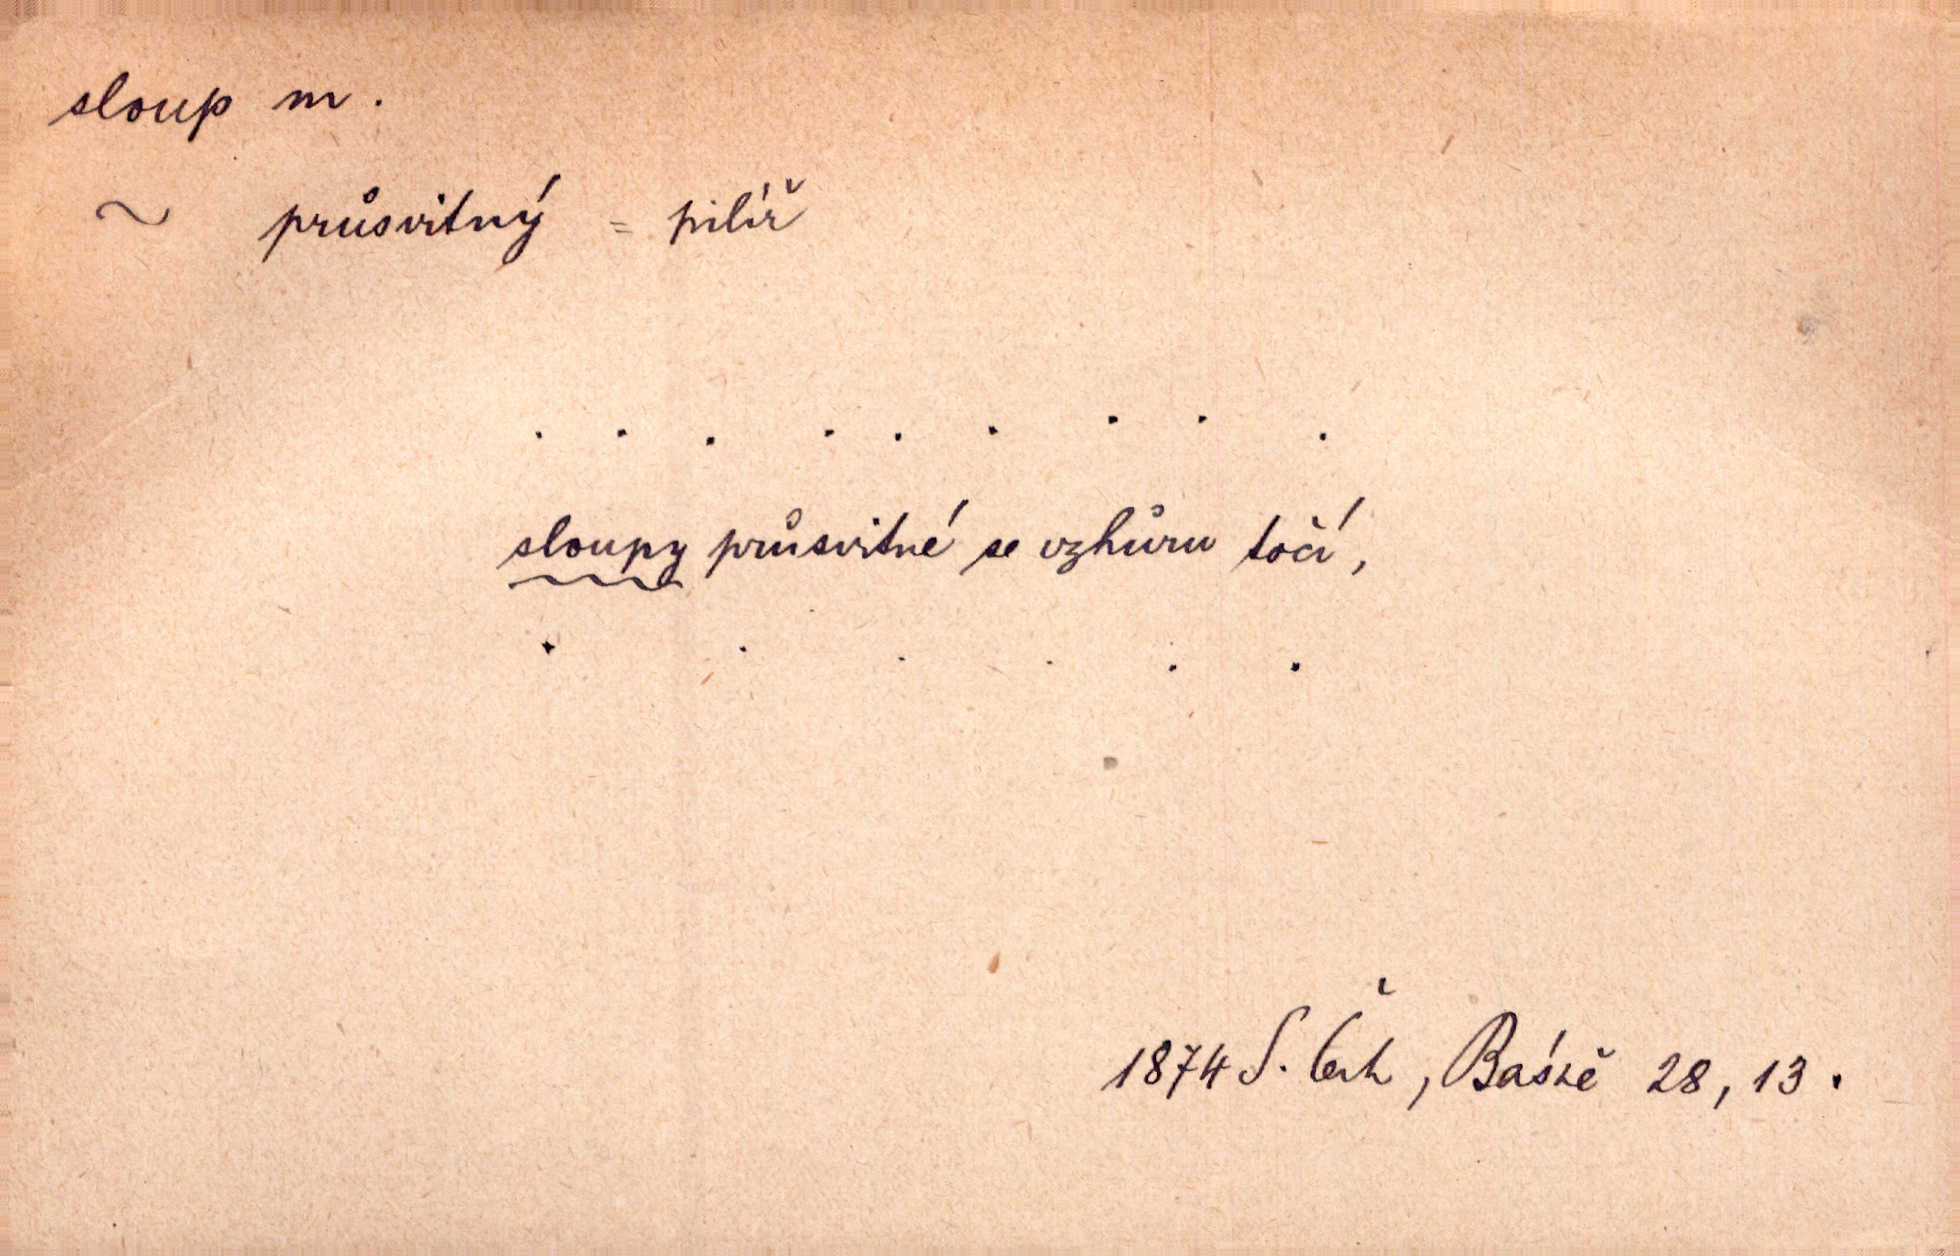 sloup m.
~ průsvitný = pilíř
. . . . . . . . .
sloupy průsvitné se vzhůru točí,
. . . . . .
1874 S. Čech, Básně 28, 13.